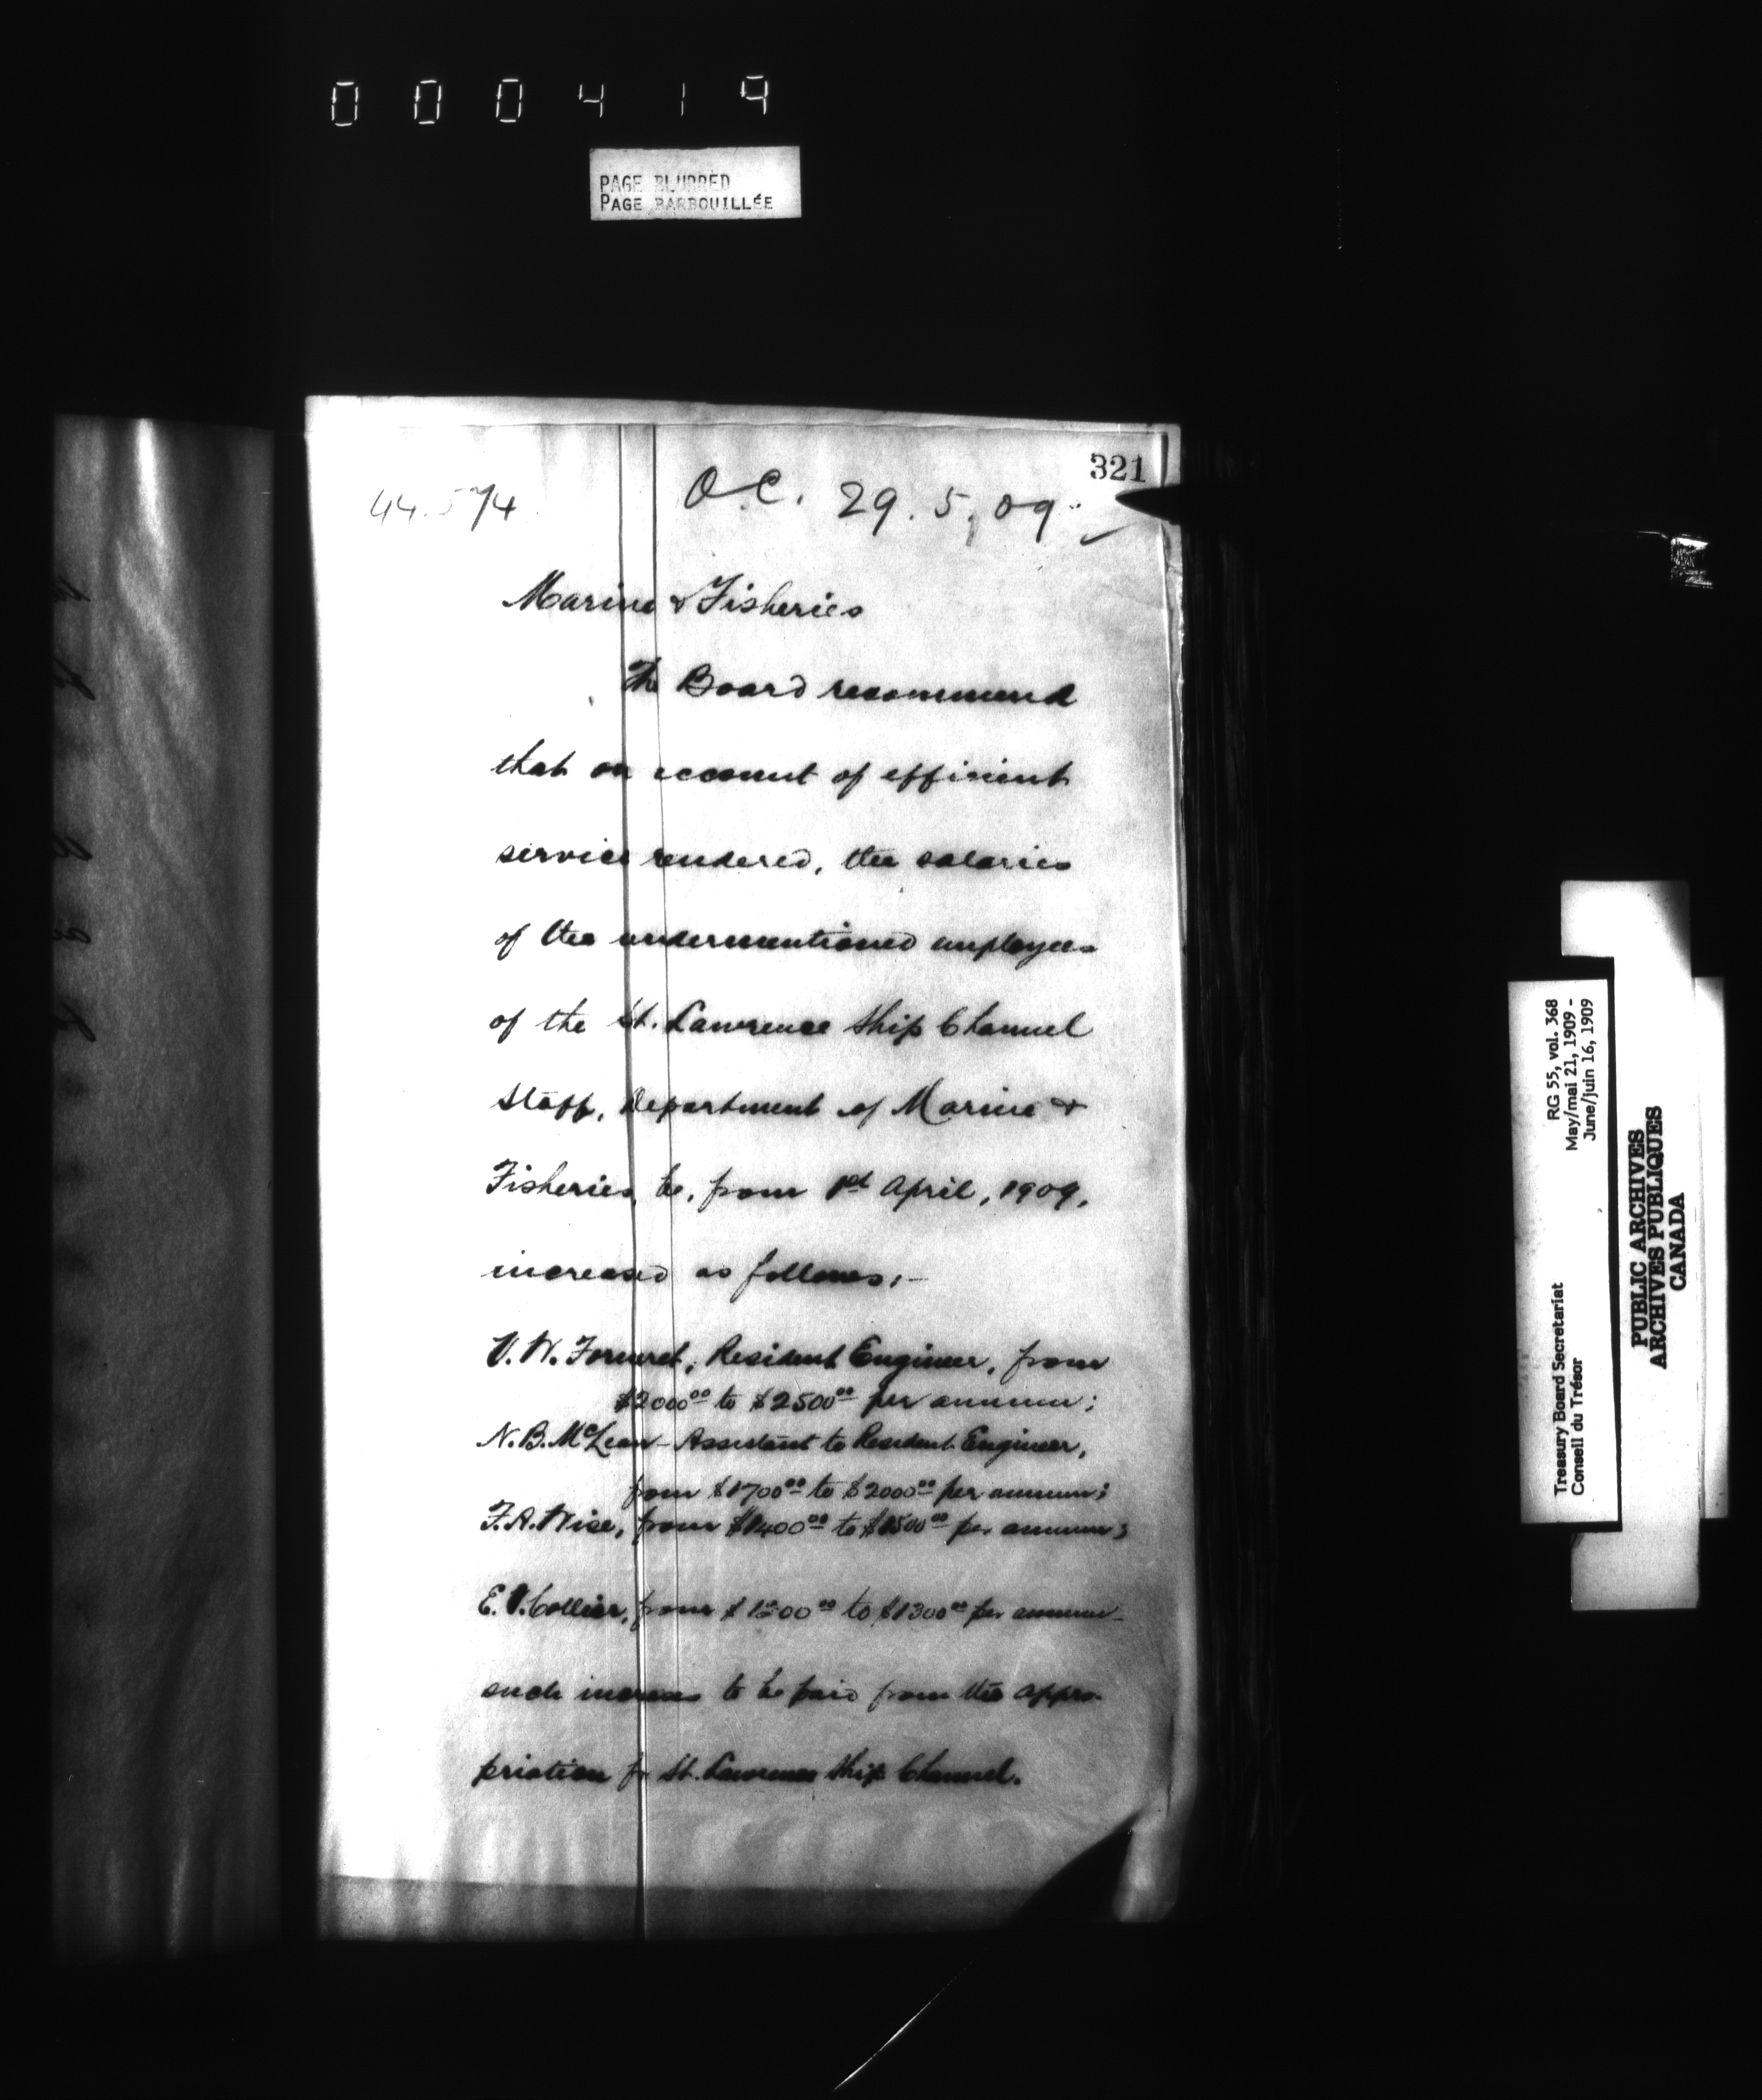 000419
PAGE BLURRED
PAGE BARBOUILLÉE
321
44.574
O.C. 29.5.09
Marine & Fisheries
The Board recommend
that on account of efficient
service rendered, the salaries
of the undermentioned employees
of the St. Lawrence Ship Channel
Staff, Department of Marine &
Fisheries, be, from 1st April, 1909,
increased as follows:-
V.W. Forneret, Resident Engineer, from
$2000.00 to $2500.00 per annum;
N.B. McLean - Assistant to Resident Engineer,
from $1700.00 to $2000.00 per annum;
F.A. Wise, from $1400.00 to $1500.00 per annum;
E.V. Collier, from $1200.00 to $1300.00 per annum -
such increases to be paid from the appro-
priation for St. Lawrence Ship Channel.
Treasury Board Secretariat RG 55, vol. 368
Conseil du Trésor May/mai 21, 1909 -
June/juin 16, 1909
PUBLIC ARCHIVES
ARCHIVES PUBLIQUES
CANADA